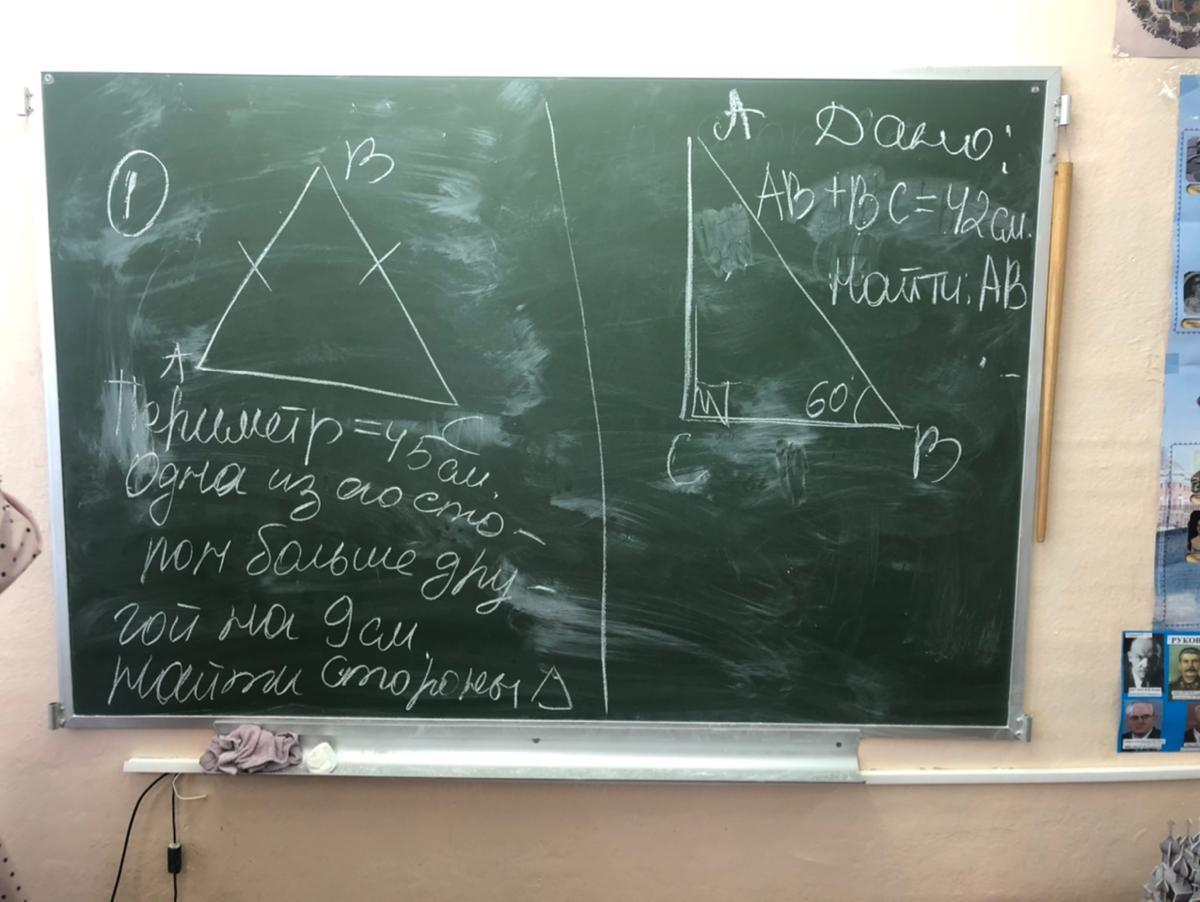 1
B
A
C
Периметр = 45 см.
Одна из сто-
рон больше дру-
гой на 9 см.
Найти стороны △
A
Дано:
AB + BC = 42 см.
Найти: AB
60°
C
B
РУКОВ